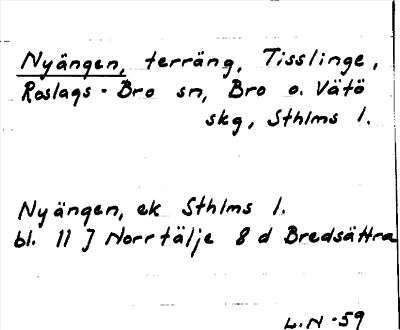 Nyängen, terräng, Tisslinge,
Roslags-Bro sn, Bro o. Vätö
skg, Sthlms l.
Nyängen, ek Sthlms l.
bl. 11 J Norrtälje 8 d Bredsättra
L.N -59